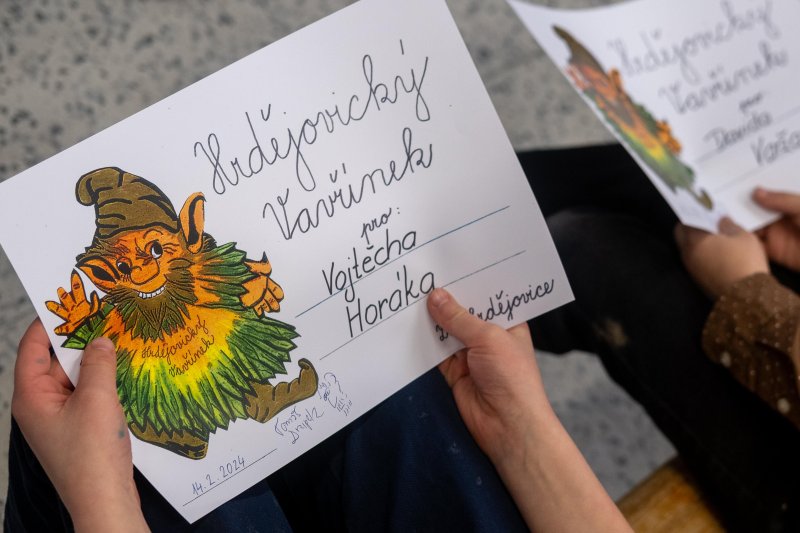 Hrdějovický
Vavřínek
pro:
Vojtěcha
Horáka
Hrdějovice
Hrdějovický
Vavřínek
14. 2. 2024
Tomáš
Hrdějovický
Vavřínek
pro
Davida